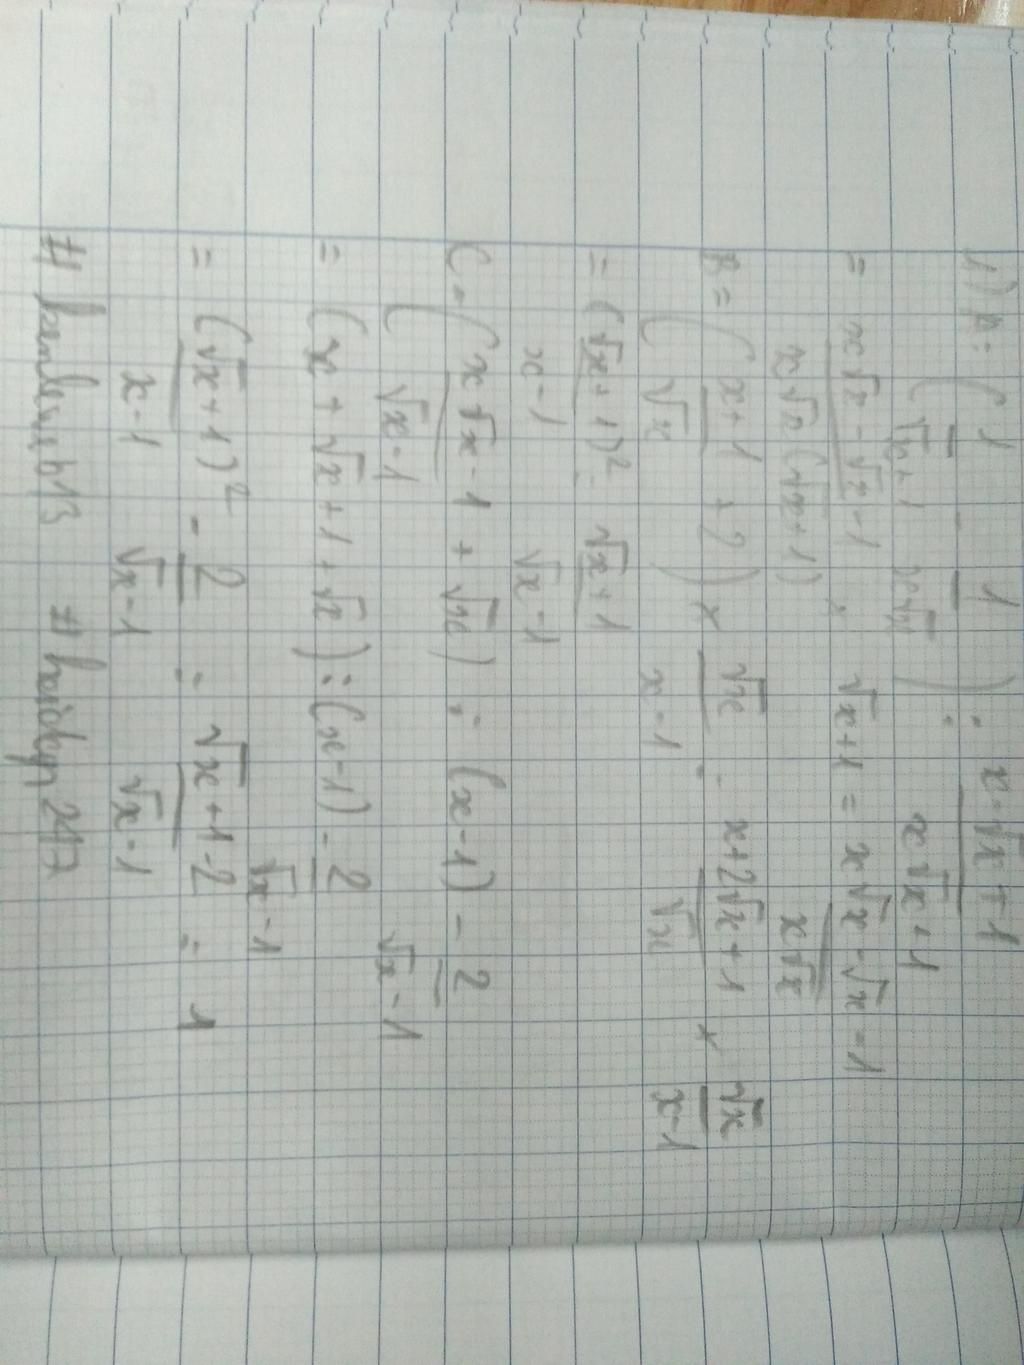 1) A = ( 1/(√x+1) - 1/(x√x) ) : (x-√x+1)/(x√x+1)
= (x√x-√x-1)/(x√x(√x+1)) × √x+1 = (x√x-√x-1)/(x√x)
B = ( (x+1)/√x + 2 ) × √x/(x-1) = (x+2√x+1)/√x × √x/(x-1)
= (√x+1)²/(x-1) = (√x+1)/(√x-1)
C = ( (x√x-1)/(√x-1) + √x ) : (x-1) - 2/(√x-1)
= (x+√x+1+√x) : (x-1) - 2/(√x-1)
= (√x+1)²/(x-1) - 2/(√x-1) = (√x+1-2)/(√x-1) = 1